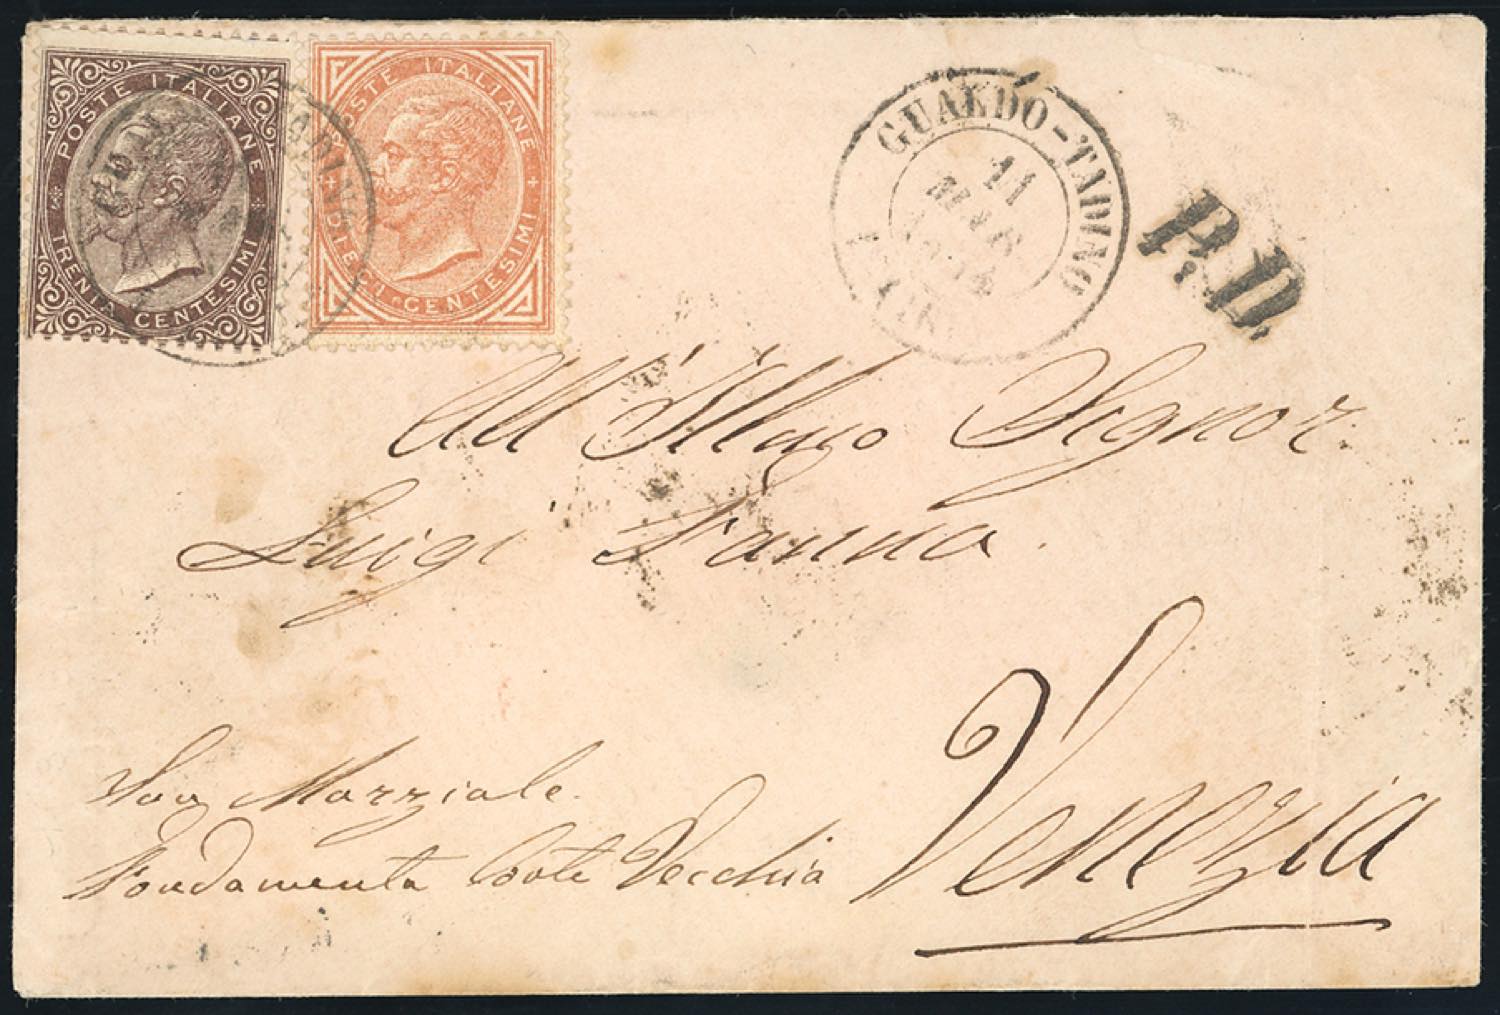 POSTE ITALIANE
TRENTA CENTESIMI
POSTE ITALIANE
DIECI CENTESIMI
GUALDO-TADINO
11
MAR
P.D.
All' Illmo Signor
Luigi Fanna.
Venezia
San Marziale.
Fondamenta Corte Vecchia